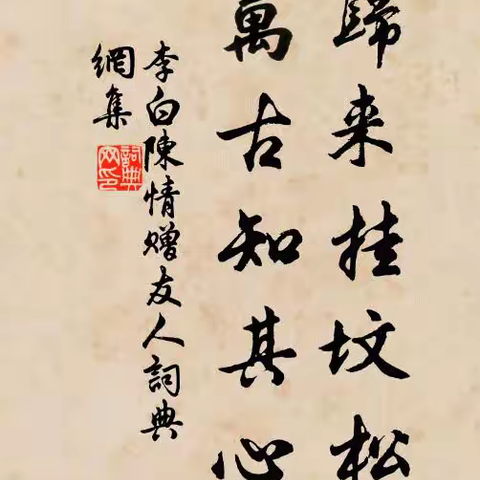 歸来挂坟松
萬古知其心
李白陳情贈友人詞典
網集
詞典
网印